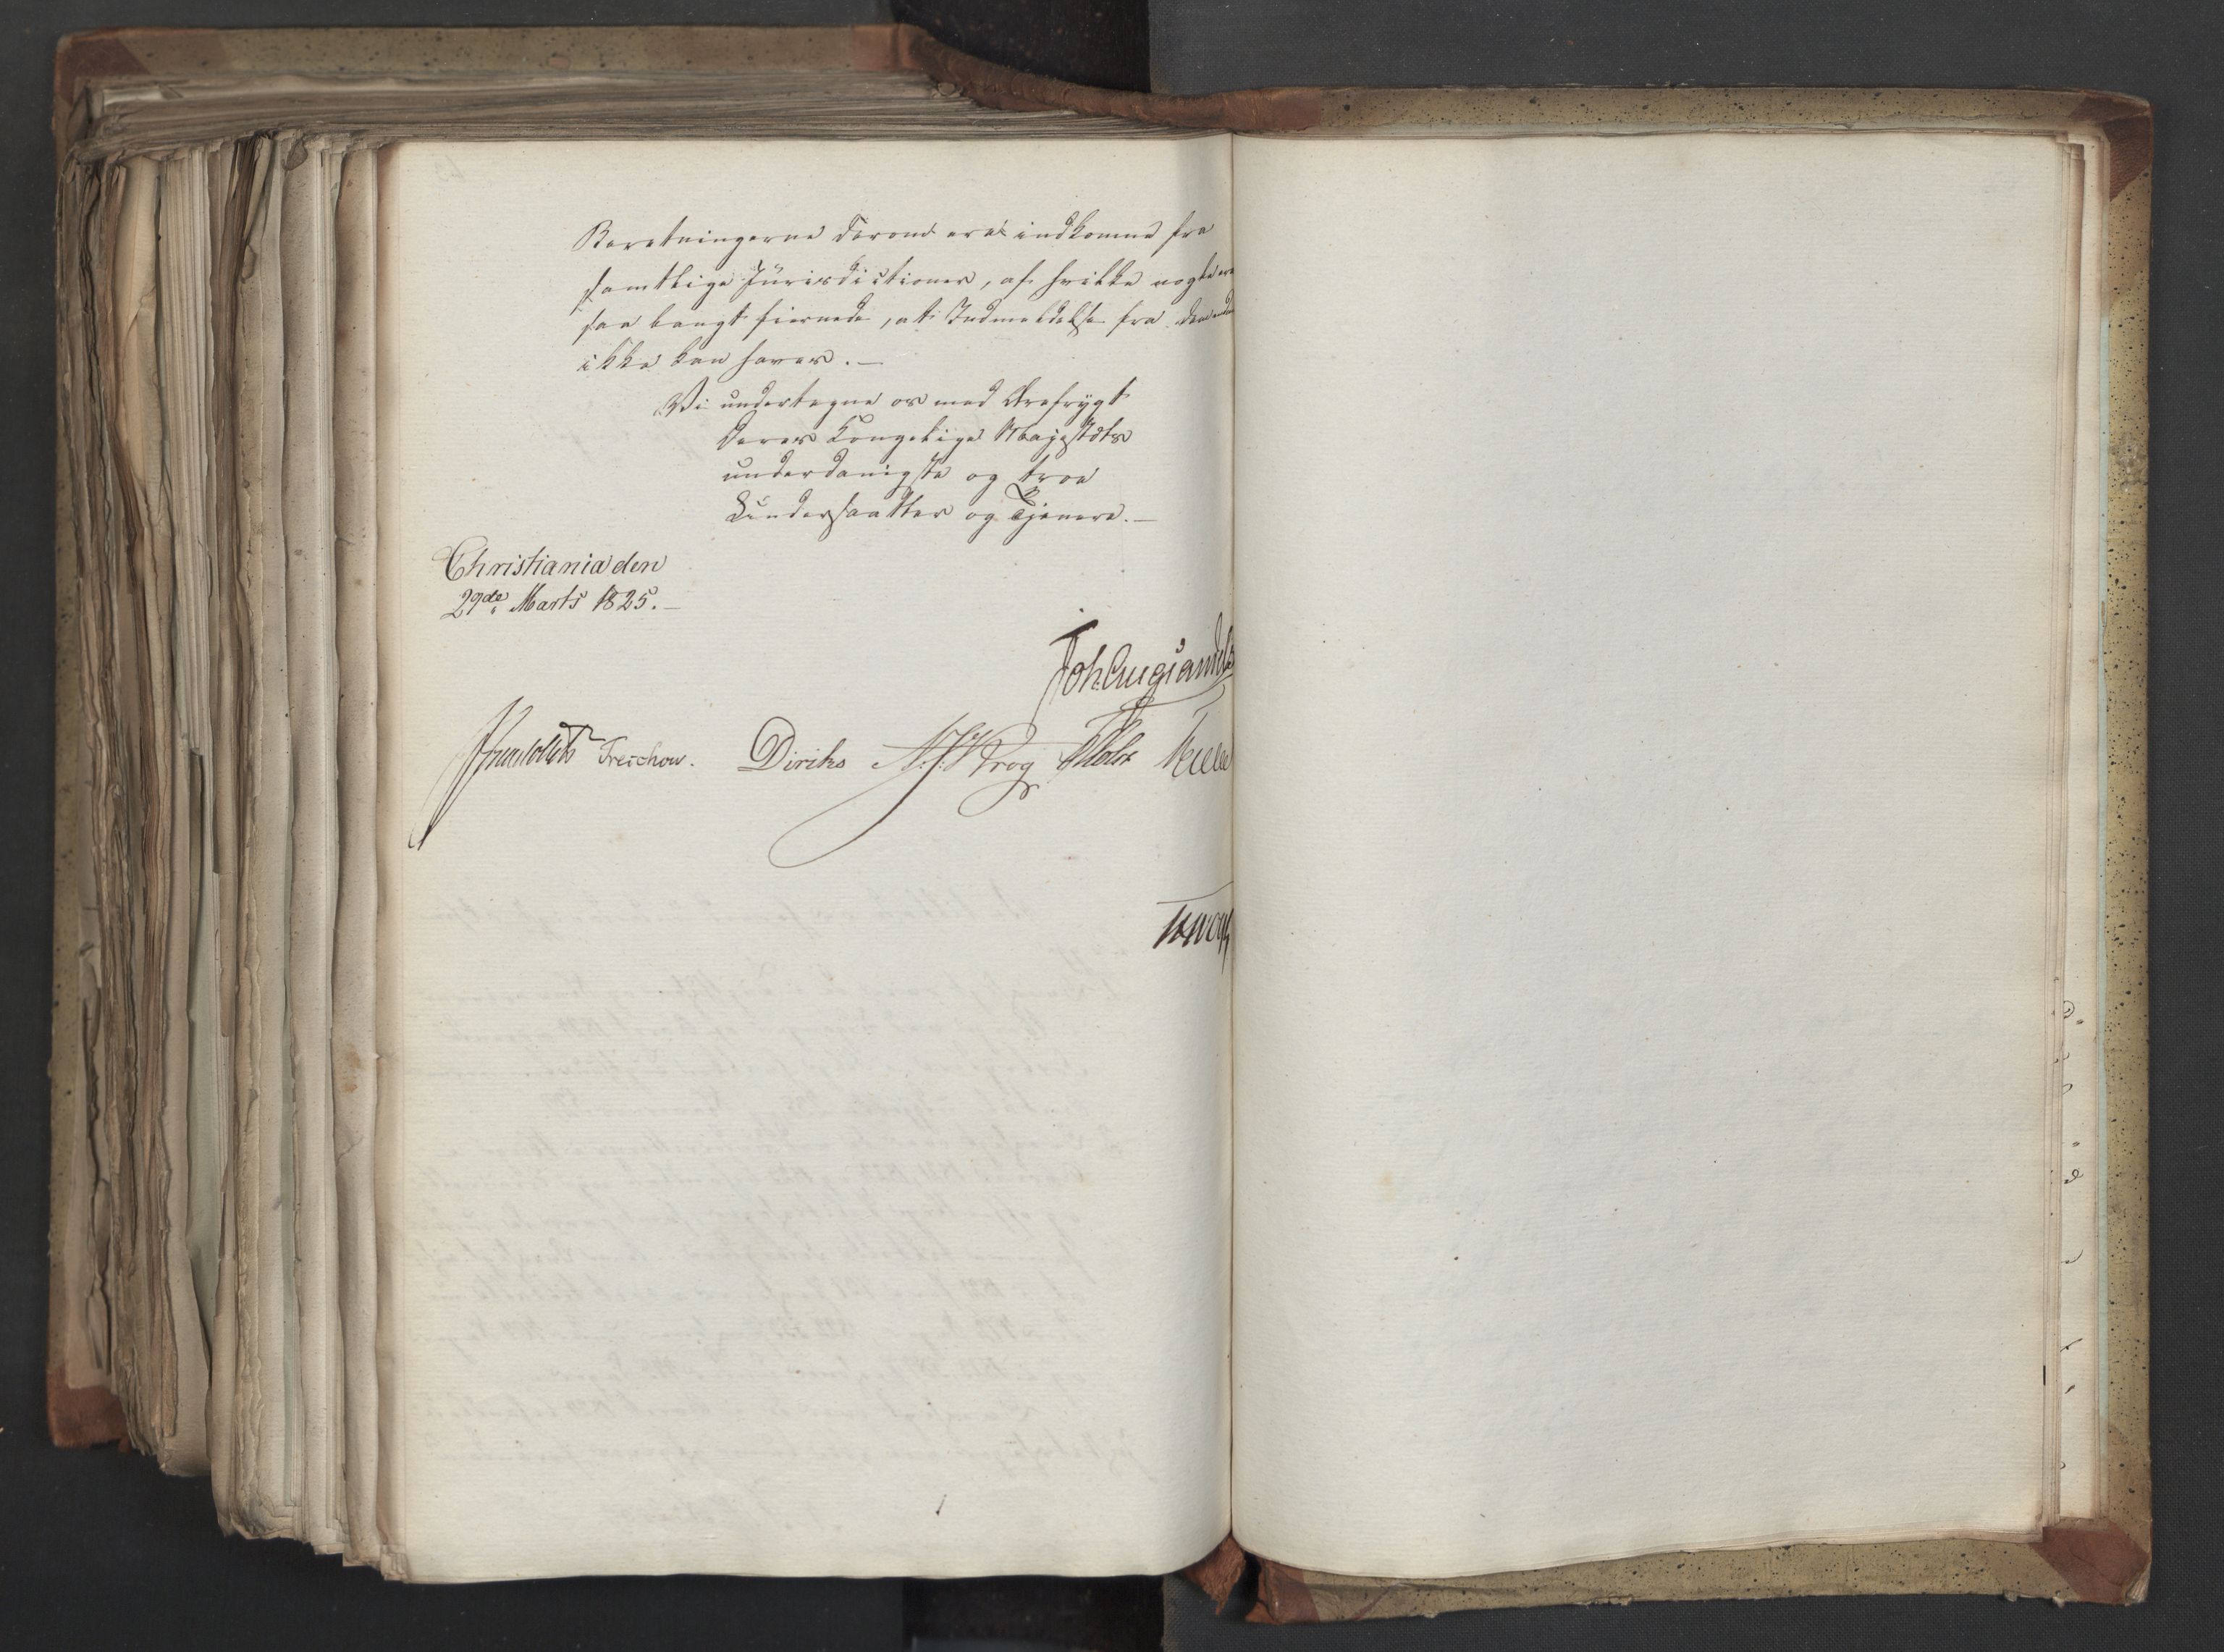 Beretningerne derom ere indkomne fra
samtlige Jurisdictioner, af hvilke nogle ere
saa langt fiernede, at Indmeldelse fra dem endnu
ikke kan haves. —
Vi undertegne os med Ærefrygt
Deres Kongelige Majestæts
underdanigste og troe
Undersaatter og Tjenere. —
Christiania den
29de Marts 1825. —
Joh. Aug: Sandels
Treschow. Diriks N. J. Krog